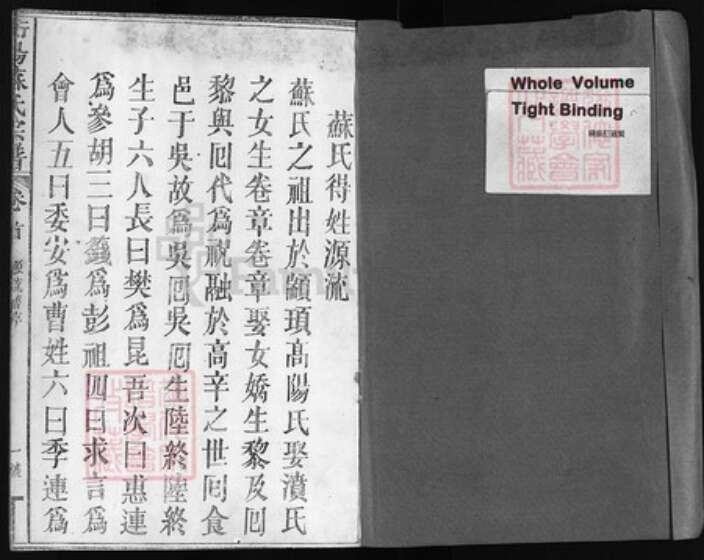 Whole Volume
Tight Binding
蘇氏得姓源流
蘇氏之祖出於顓頊高陽氏娶瀆氏
之女生卷章卷章娶女嬌生黎及囘
黎與囘代爲祝融於高辛之世囘食
邑于吳故爲吳囘吳囘生陸終陸終
生子六人長曰樊爲昆吾次曰惠連
爲參胡三曰籛爲彭祖四曰求言爲
會人五曰委安爲曹姓六曰季連爲
蘇氏宗譜
卷首